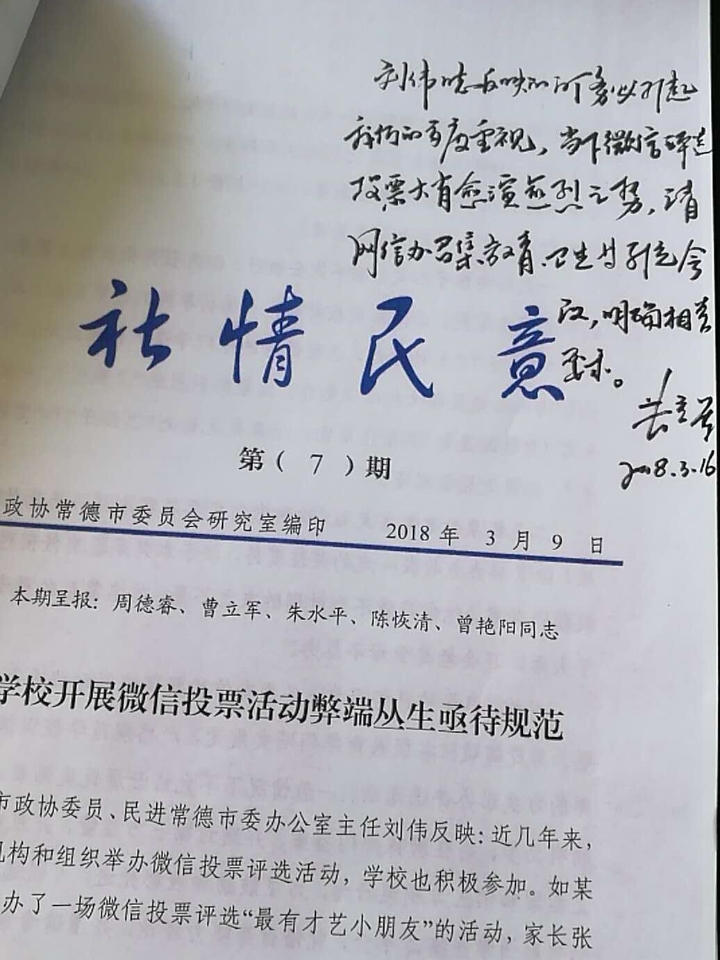 刘伟同志反映的问题必须引起
我们的高度重视，当下微信评选
投票大有愈演愈烈之势，请
网信办召集教育、卫生等部门会
议，明确相关
要求。
曹立军
2018.3.16
社情民意
第（7）期
政协常德市委员会研究室编印 2018年3月9日
本期呈报：周德睿、曹立军、朱水平、陈恢清、曾艳阳同志
学校开展微信投票活动弊端从生亟待规范
市政协委员、民进常德市委办公室主任刘伟反映：近几年来，
机构和组织举办微信投票评选活动，学校也积极参加。如某
办了一场微信投票评选“最有才艺小朋友”的活动，家长张